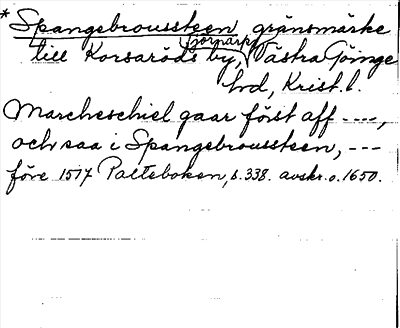 * Spangebroussteen gränsmärke
till Korsaröds by, Västra Göinge
hd, Krist. l.
Marcheschiel gaar först aff ----,
och saa i Spangebroussteen, ---
före 1517 Palteboken, s. 338. avskr. o. 1650.